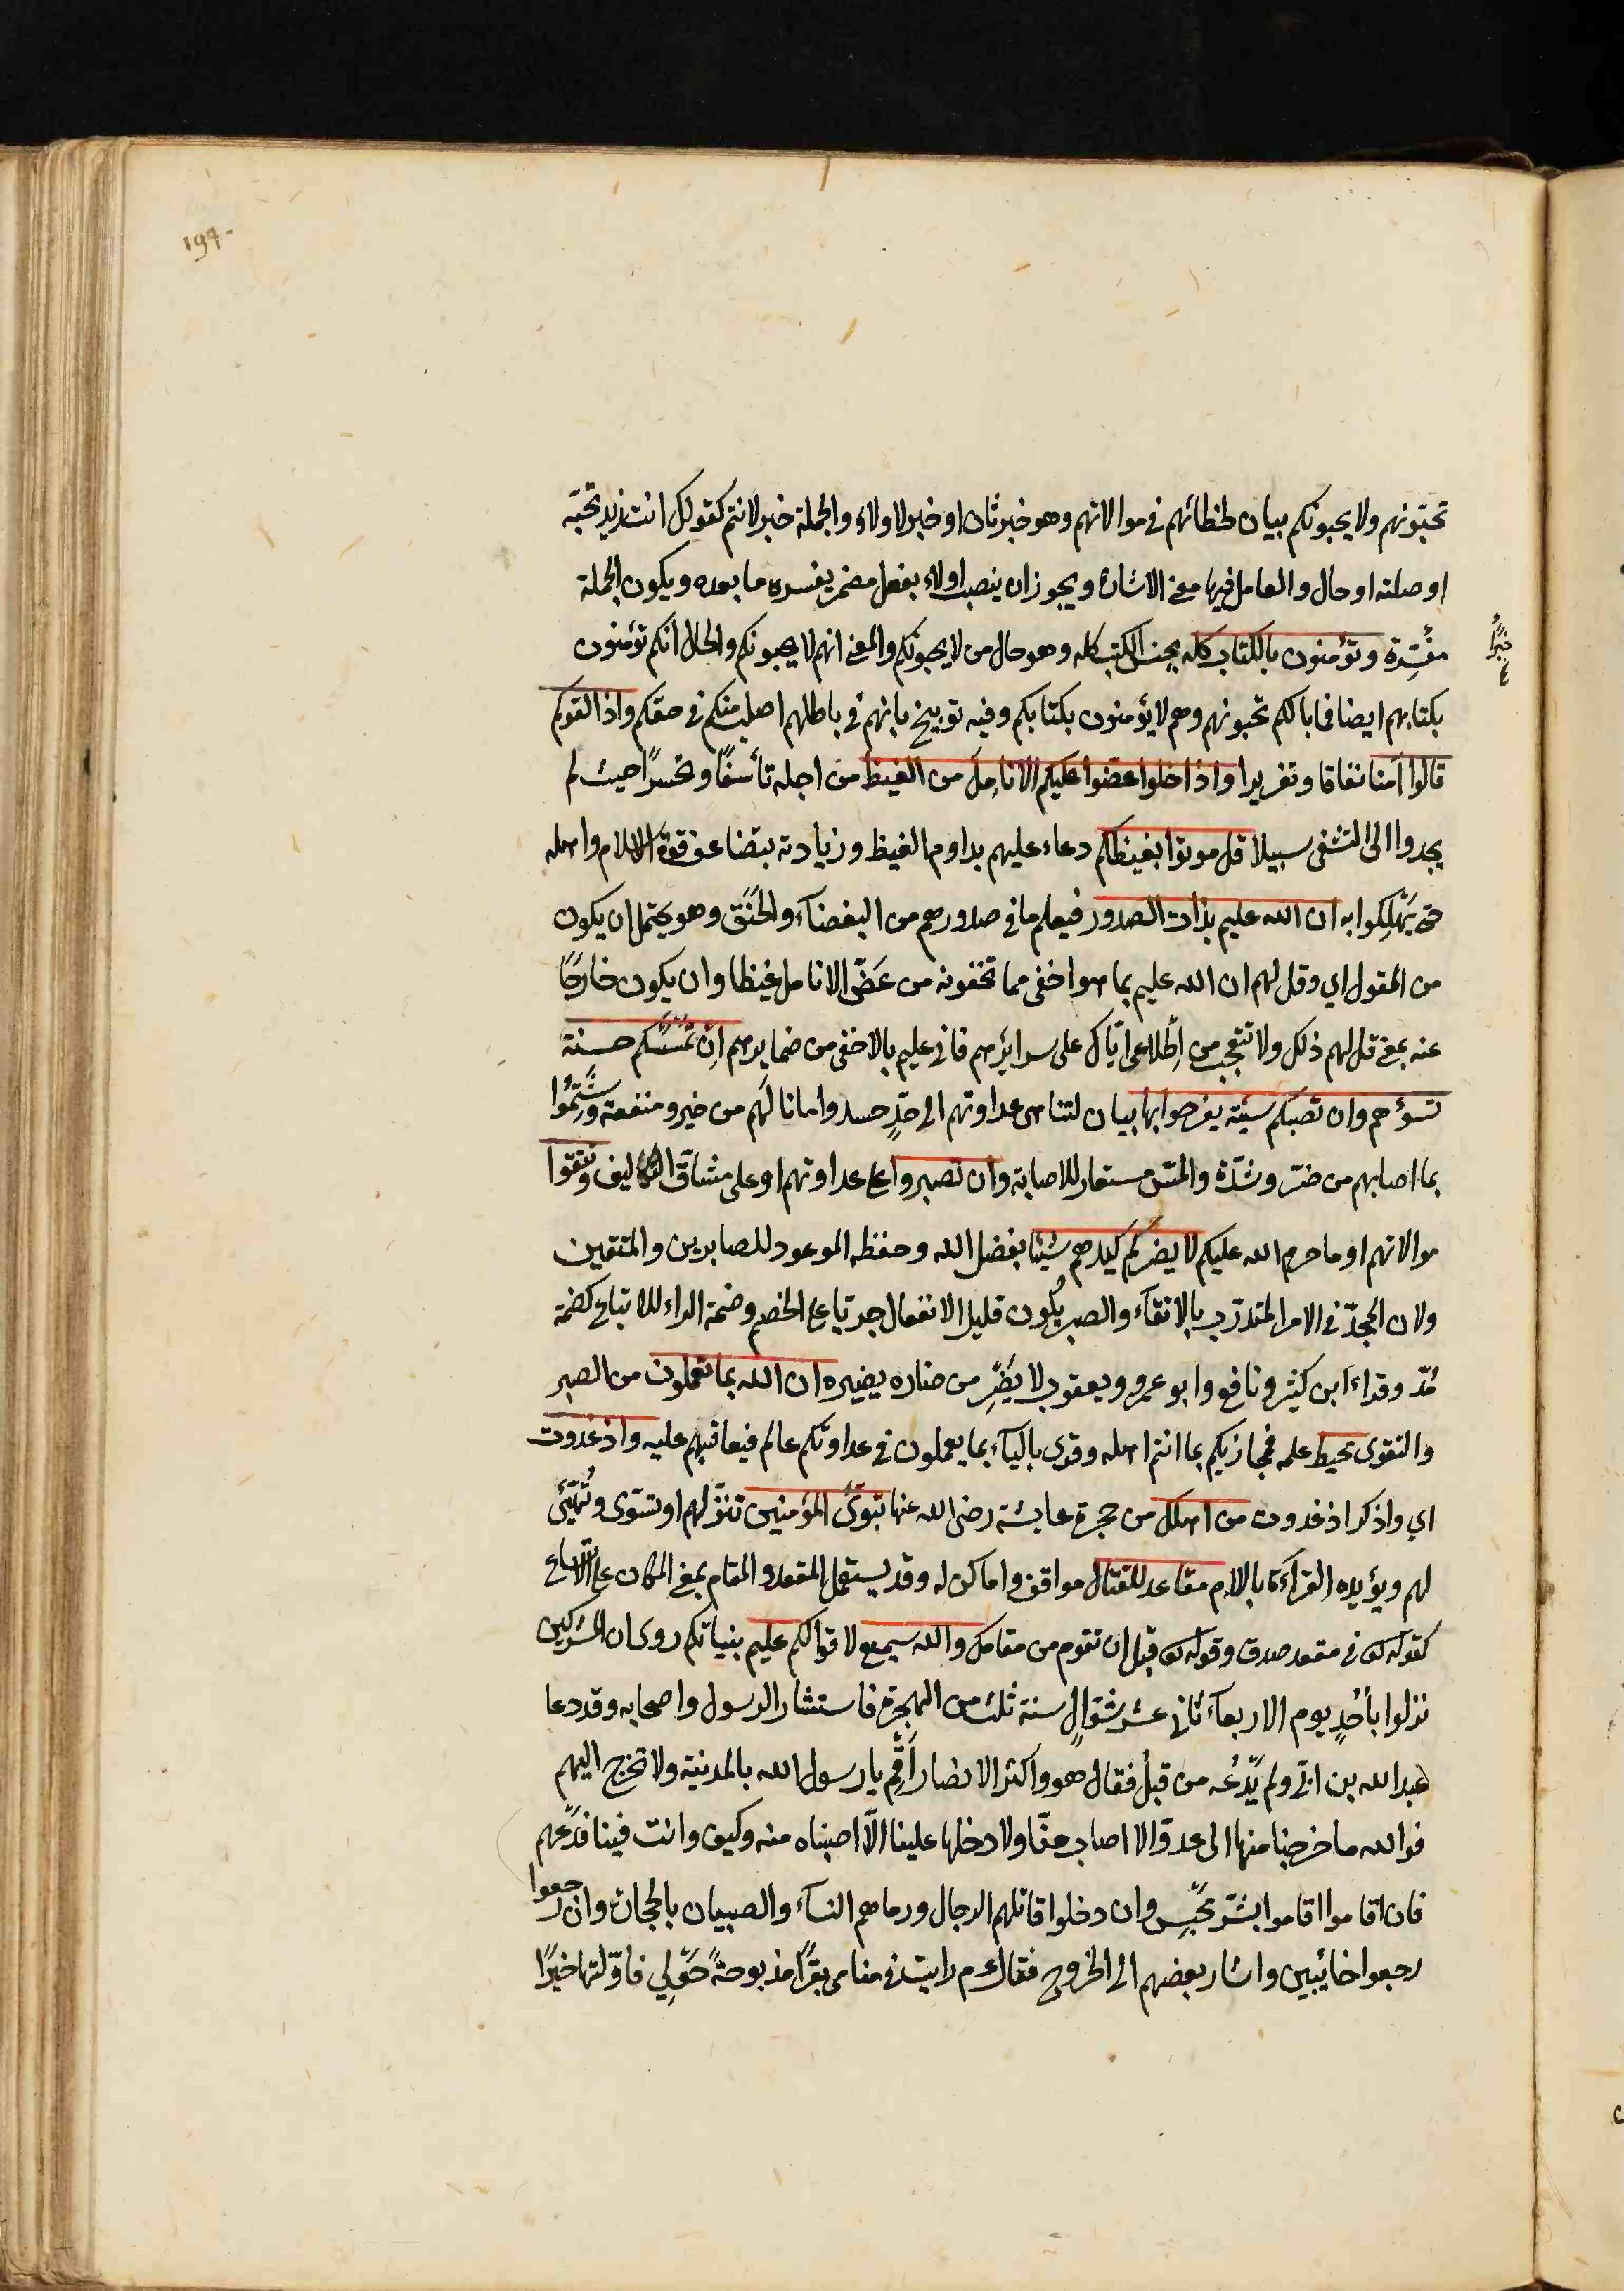 ۱۹۴
تحبّونهم ولا يحبونكم بيان لخطائهم في موالاتهم وهو خبر ثان او خبر لاولاء والجملة خبر لانتم كقولك انت زيد تحبّه
او صلته او حال والعامل فيها معنى الاشارة ويجوز ان ينصب اولاء بفعل مضمر يفسره ما بعده ويكون الجملة
خبرًا
مفسّرة وتؤمنون بالكتاب كله بجنس الكتب كله وهو حال من لا يحبونكم والمعنى انهم لا يحبونكم والحال انكم تؤمنون
بكتابهم ايضا فما بالكم تحبونهم وهم لا يؤمنون بكتابكم وفيه توبيخ بانهم في باطلهم اصلب منكم في حقكم واذا لقوكم
قالوا آمنا نفاقا وتغريرا واذا خلوا عضّوا عليكم الانامِلَ من الغيظ من اجله تأسفًا وتحسرًا حيث لم
يجدوا الى التشفى سبيلا قل موتوا بغيظكم دعاء عليهم بدوام الغيظ وزيادته بتضاعف قوة الاسلام واهله
حتى يَهْلِكوا به ان الله عليم بذات الصدور فيعلم ما في صدورهم من البغضآء والحَنَق وهو يحتمل ان يكون
من المقول اي وقل لهم ان الله عليم بما هو اخفى مما تخفونه من عَضّ الانامل غيظا وان يكون خارجًا
عنه بمعنى قل لهم ذلك ولا تتعجب من اِطّلاعى ايّاك على سرايرهم فانى عليم بالاخفى من ضمايرهم اِنْ تَمْسَسْكم حسنة
تسؤهم وان تصبكم سيّئة يفرحوا بها بيان لتناهى عداوتهم الى حدٍّ حسدوا ما نالَهُم من خير ومنفعة وشَمِتُوا
بما اصابهم من ضرّ وشدّة والمسّ مستعار للاصابة وان تصبروا على عداوتهم او على مشاقّ التكاليف وتتقوا
موالاتهم او ما حرم الله عليكم لا يضركم كيدهم شيئا بفضل الله وحفظه الموعود للصابرين والمتقين
ولان المجدّ في الامر المتدرّب بالاتقآء والصبر يكون قليل الانفعال جريّا على الخصم وضمة الراء للاتباع كضمة
مُدّ وقراء ابن كثير ونافع وابو عمرو ويعقوب لا يَضِرْ من ضاره يضيره ان الله بما تعملون من الصبر
والتقوى محيط علمه فمجازيكم بما انتم اهله وقرى باليآء بما يعملون في عداوتكم عالم فيعاقبهم عليه واذ غدوت
اي واذكر اذ غدوت من اهلك من حجرة عايشة رضى الله عنها تبوّئ المؤمنين تنزّلهم او تسوّى وتُهيّئ
لهم ويؤيده القرآءة باللام مقاعد للقتال مواقف واماكن له وقد يستعمل المقعد والمقام بمعنى المكان على الاتساع
كقوله تعالى في مقعد صدق وقوله تعالى قبل ان تقوم من مقامك والله سميع لاقوالكم عليم بنياتكم روى ان المشركين
نزلوا بأُحُدٍ يوم الاربعآء ثانى عشر شوّال سنة ثلث من الهجرة فاستشار الرسول واصحابه وقد دعا
عبدالله بن ابيّ ولم يَدْعُه من قبلُ فقال هو واكثر الانصار اَقِمْ يا رسول الله بالمدينة ولا تخرج اليهم
فوالله ما خرجنا منها الى عدوّ الا اصاب منّا ولا دخلها علينا الّا اصبناه منه وكيف وانت فينا فدَعْهم
فان اقاموا اقاموا بشرّ مَحْبِسٍ وان دخلوا قاتلهم الرجال ورماهم النسآء والصبيان بالحجارة وان رجعوا
رجعوا خائبين واشار بعضهم الى الخروج فقال م رايت في منامى بقرًا مذبوحةً حَوْلِي فاوّلتها خيرًا